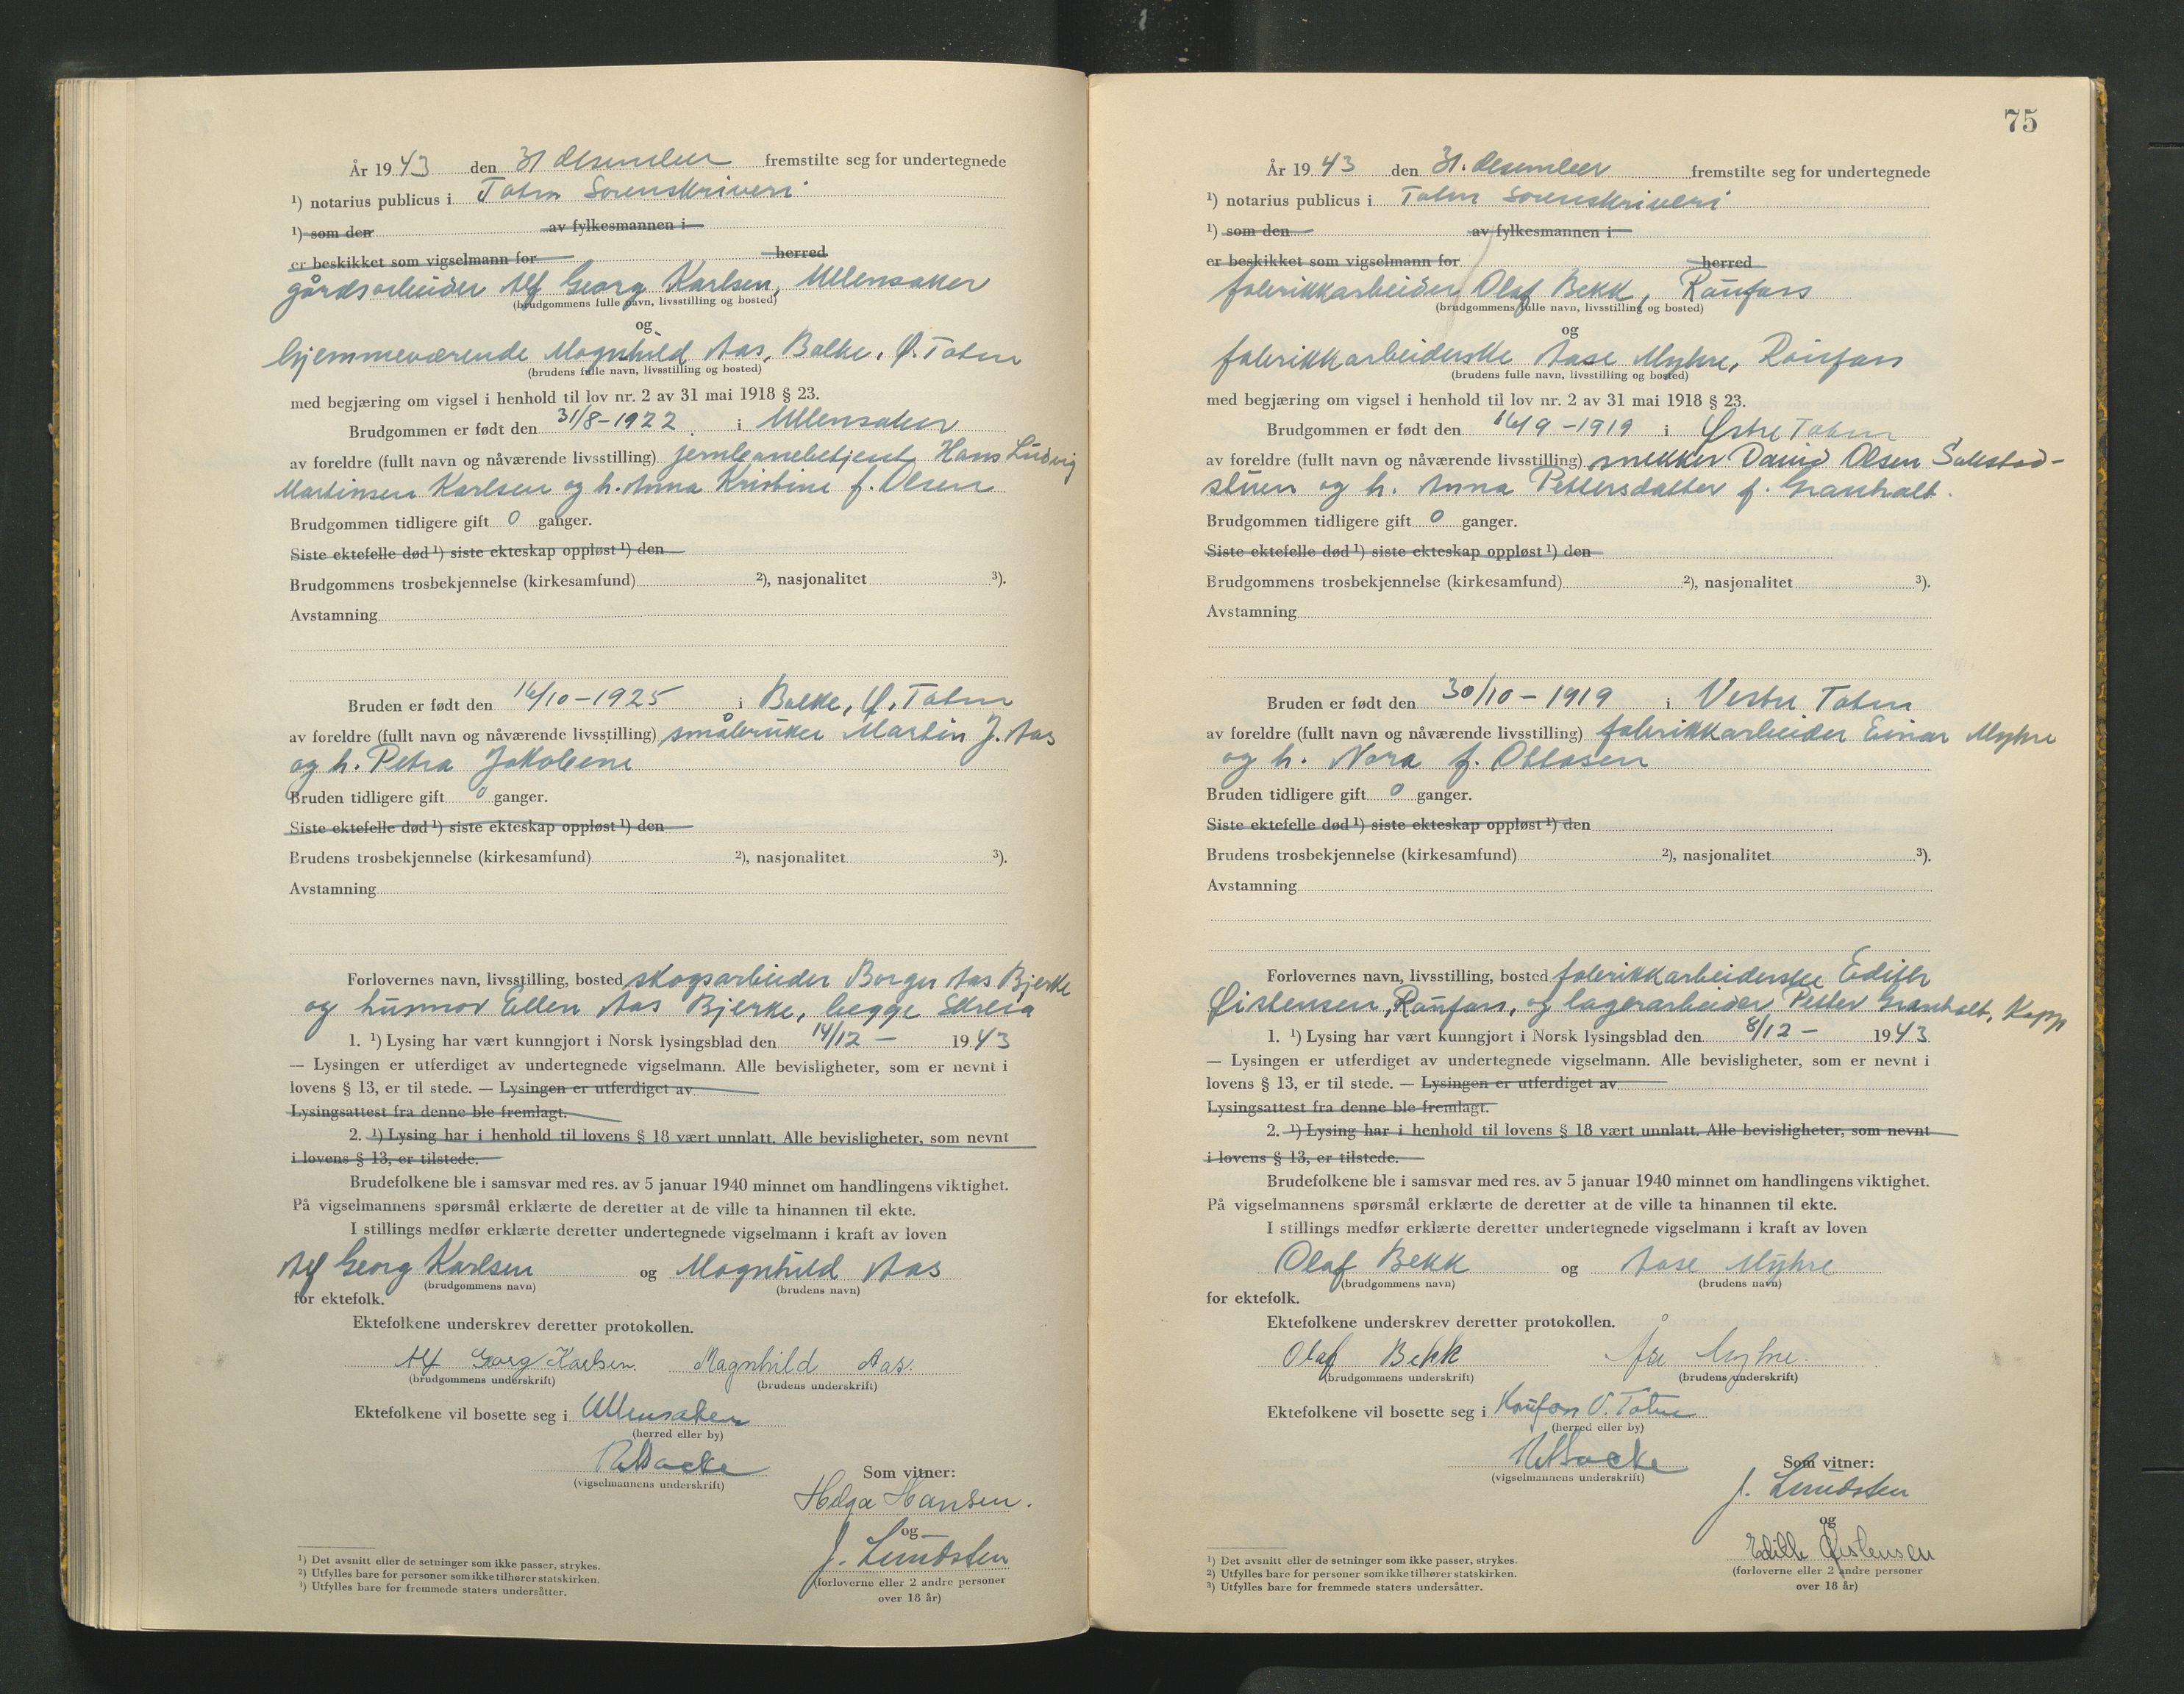 År 19 43 den 31 desember fremstilte seg for undertegnede
¹) notarius publicus i Toten Sorenskriveri
¹) som den av fylkesmannen i
er beskikket som vigselmann for herred
gårdsarbeider Alf Georg Karlsen, Ullensaker
(brudgommens fulle navn, livsstilling og bosted)
og
hjemmeværende Magnhild Aas, Balke, Ø. Toten
(brudens fulle navn, livsstilling og bosted)
med begjæring om vigsel i henhold til lov nr. 2 av 31 mai 1918 § 23.
Brudgommen er født den 31/8-1922 i Ullensaker
av foreldre (fullt navn og nåværende livsstilling) jernbanebetjent Hans Ludvig
Martinsen Karlsen og h. Anna Kristine f. Olsen
Brudgommen tidligere gift 0 ganger.
Siste ektefelle død ¹) siste ekteskap oppløst ¹) den
Brudgommens trosbekjennelse (kirkesamfund) ²), nasjonalitet ³).
Avstamning
Bruden er født den 16/10-1925 i Balke, Ø. Toten
av foreldre (fullt navn og nåværende livsstilling) småbruker Martin J. Aas
og h. Petra Jakobine
Bruden tidligere gift 0 ganger.
Siste ektefelle død ¹) siste ekteskap oppløst ¹) den
Brudens trosbekjennelse (kirkesamfund) ²), nasjonalitet ³).
Avstamning
Forlovernes navn, livsstilling, bosted skogsarbeider Borger Aas Bjerke
og husmor Ellen Aas Bjerke, begge Skreia
1. ¹) Lysing har vært kunngjort i Norsk lysingsblad den 14/12 - 19 43
— Lysingen er utferdiget av undertegnede vigselmann. Alle bevisligheter, som er nevnt i
lovens § 13, er til stede. — Lysingen er utferdiget av
Lysingsattest fra denne ble fremlagt.
2. ¹) Lysing har i henhold til lovens § 18 vært unnlatt. Alle bevisligheter, som nevnt
i lovens § 13, er tilstede.
Brudefolkene ble i samsvar med res. av 5 januar 1940 minnet om handlingens viktighet.
På vigselmannens spørsmål erklærte de deretter at de ville ta hinannen til ekte.
I stillings medfør erklærte deretter undertegnede vigselmann i kraft av loven
Alf Georg Karlsen og Magnhild Aas
(brudgommens navn) (brudens navn)
for ektefolk.
Ektefolkene underskrev deretter protokollen.
Alf Georg Karlsen. Magnhild Aas.
(brudgommens underskrift) (brudens underskrift)
Ektefolkene vil bosette seg i Ullensaker
(herred eller by)
(vigselmannens underskrift)
Som vitner:
Helga Hansen.
og
J. Lundsten
(forloverne eller 2 andre personer
over 18 år)
¹) Det avsnitt eller de setninger som ikke passer, strykes.
²) Utfylles bare for personer som ikke tilhører statskirken.
³) Utfylles bare for fremmede staters undersåtter.
75
År 19 43 den 31. desember fremstilte seg for undertegnede
¹) notarius publicus i Toten sorenskriveri
¹) som den av fylkesmannen i
er beskikket som vigselmann for herred
fabrikkarbeider Olaf Bekk, Raufoss
(brudgommens fulle navn, livsstilling og bosted)
og
fabrikkarbeiderske Aase Myhre, Raufoss
(brudens fulle navn, livsstilling og bosted)
med begjæring om vigsel i henhold til lov nr. 2 av 31 mai 1918 § 23.
Brudgommen er født den 16/9-1919 i Østre Toten
av foreldre (fullt navn og nåværende livsstilling) snekker David Olsen Sukstad-
stuen og h. Anna Pettersdatter f. Granholt.
Brudgommen tidligere gift 0 ganger.
Siste ektefelle død ¹) siste ekteskap oppløst ¹) den
Brudgommens trosbekjennelse (kirkesamfund) ²), nasjonalitet ³).
Avstamning
Bruden er født den 30/10-1919 i Vestre Toten
av foreldre (fullt navn og nåværende livsstilling) fabrikkarbeider Einar Myhre
og h. Nora f. Ottosen
Bruden tidligere gift 0 ganger.
Siste ektefelle død ¹) siste ekteskap oppløst ¹) den
Brudens trosbekjennelse (kirkesamfund) ²), nasjonalitet ³).
Avstamning
Forlovernes navn, livsstilling, bosted fabrikkarbeiderske Edith
Øistensen, Raufoss, og lagerarbeider Petter Granholt, Kapp
1. ¹) Lysing har vært kunngjort i Norsk lysingsblad den 8/12 - 19 43
— Lysingen er utferdiget av undertegnede vigselmann. Alle bevisligheter, som er nevnt i
lovens § 13, er til stede. — Lysingen er utferdiget av
Lysingsattest fra denne ble fremlagt.
2. ¹) Lysing har i henhold til lovens § 18 vært unnlatt. Alle bevisligheter, som nevnt
i lovens § 13, er tilstede.
Brudefolkene ble i samsvar med res. av 5 januar 1940 minnet om handlingens viktighet.
På vigselmannens spørsmål erklærte de deretter at de ville ta hinannen til ekte.
I stillings medfør erklærte deretter undertegnede vigselmann i kraft av loven
Olaf Bekk og Aase Myhre
(brudgommens navn) (brudens navn)
for ektefolk.
Ektefolkene underskrev deretter protokollen.
Olaf Bekk Åse Myhre.
(brudgommens underskrift) (brudens underskrift)
Ektefolkene vil bosette seg i Raufoss V. Toten
(herred eller by)
(vigselmannens underskrift)
Som vitner:
J. Lundsten
og
Edith Øistensen
(forloverne eller 2 andre personer
over 18 år)
¹) Det avsnitt eller de setninger som ikke passer, strykes.
²) Utfylles bare for personer som ikke tilhører statskirken.
³) Utfylles bare for fremmede staters undersåtter.